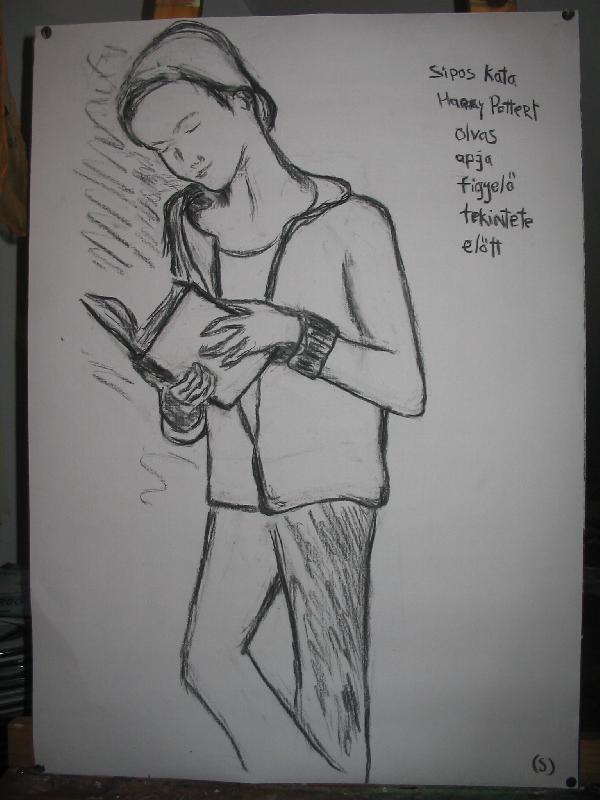 Sipos Kata
Harry Pottert
olvas
apja
figyelő
tekintete
előtt
(S)